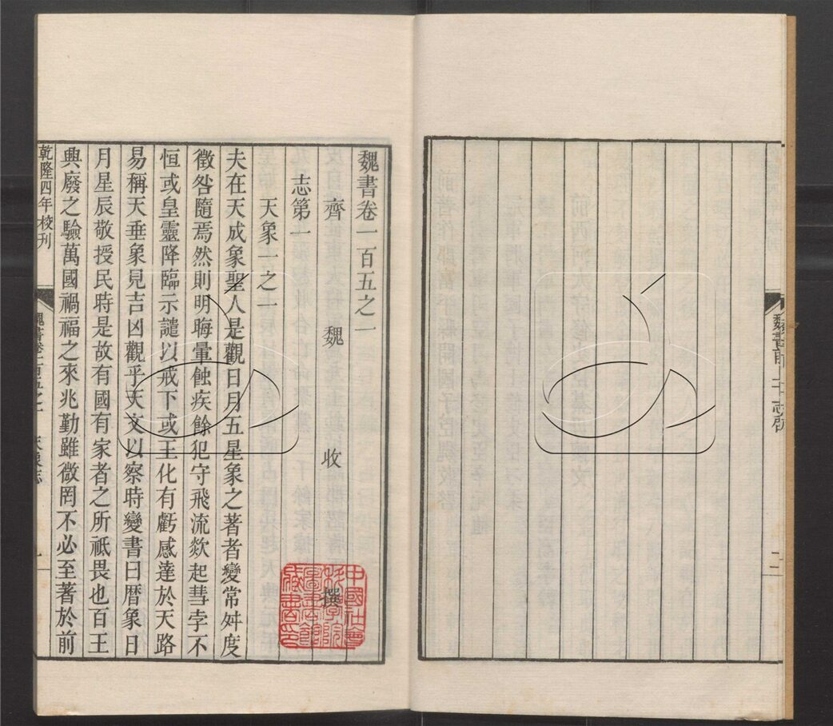 魏書卷一百五之一
齊 魏 收 撰
志第一
天象一之一
夫在天成象聖人是觀日月五星象之著者變常舛度
徵咎隨焉然則明晦暈蝕疾餘犯守飛流欻起彗孛不
恒或皇靈降臨示譴以戒下或王化有虧感達於天路
易稱天垂象見吉凶觀乎天文以察時變書曰曆象日
月星辰敬授民時是故有國有家者之所祗畏也百王
興廢之驗萬國禍福之來兆勤雖微罔不必至著於前
乾隆四年校刊
魏書卷一百五之一 天象志 一
中國社會
科學院
圖書館
藏書印